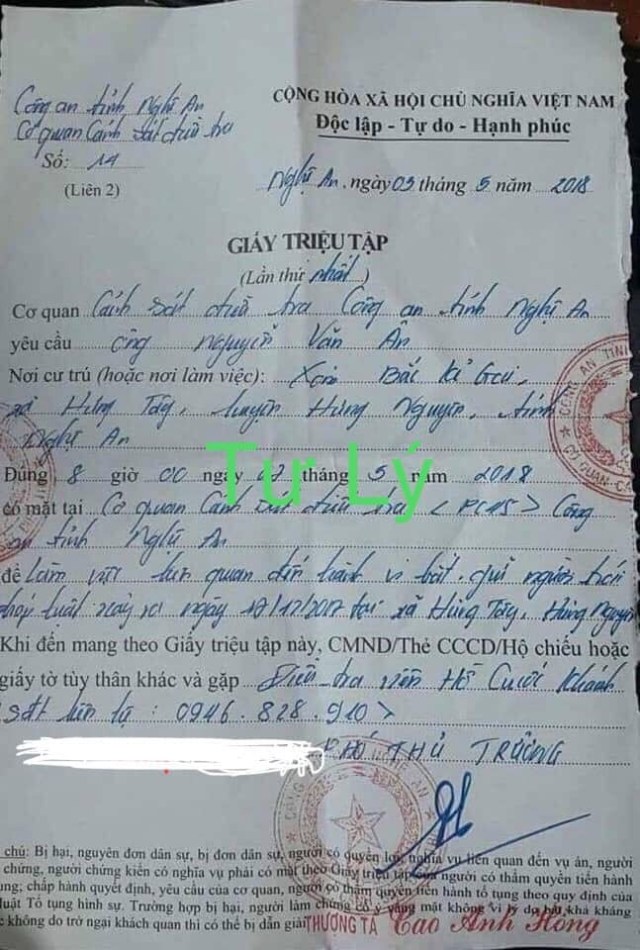 Công an tỉnh Nghệ An
Cơ quan Cảnh sát điều tra
Số: 14
(Liên 2)
CỘNG HÒA XÃ HỘI CHỦ NGHĨA VIỆT NAM
Độc lập - Tự do - Hạnh phúc
Nghệ An, ngày 03 tháng 5 năm 2018
GIẤY TRIỆU TẬP
(Lần thứ nhất)
Cơ quan Cảnh sát điều tra Công an tỉnh Nghệ An
yêu cầu ông Nguyễn Văn Ân
Nơi cư trú (hoặc nơi làm việc): Xóm Bắc
xã Hưng Tây, huyện Hưng Nguyên, tỉnh
Nghệ An
Đúng 8 giờ 00 ngày 07 tháng 5 năm 2018
Tư Lý
có mặt tại Cơ quan Cảnh sát điều tra <PC45> Công
an tỉnh Nghệ An
để Làm việc liên quan đến hành vi bắt, giữ người trái
pháp luật xảy ra ngày 17/12/2017 tại xã Hưng Tây, Hưng Nguyên
Khi đến mang theo Giấy triệu tập này, CMND/Thẻ CCCD/Hộ chiếu hoặc
giấy tờ tùy thân khác và gặp Điều tra viên Hồ Khánh
sđt liên lạc: 0946.828.910>
PHÓ THỦ TRƯỞNG
chú: Bị hại, nguyên đơn dân sự, bị đơn dân sự, người có quyền lợi, nghĩa vụ liên quan đến vụ án, người
chứng, người chứng kiến có nghĩa vụ phải có mặt theo Giấy triệu tập của người có thẩm quyền tiến hành
chấp hành quyết định, yêu cầu của cơ quan, người có thẩm quyền tiến hành tố tụng theo quy định của
luật Tố tụng hình sự. Trường hợp bị hại, người làm chứng cố ý vắng mặt không vì lý do bất khả kháng
không do trở ngại khách quan thì có thể bị dẫn giải
THƯỢNG TÁ Cao Anh Hồng